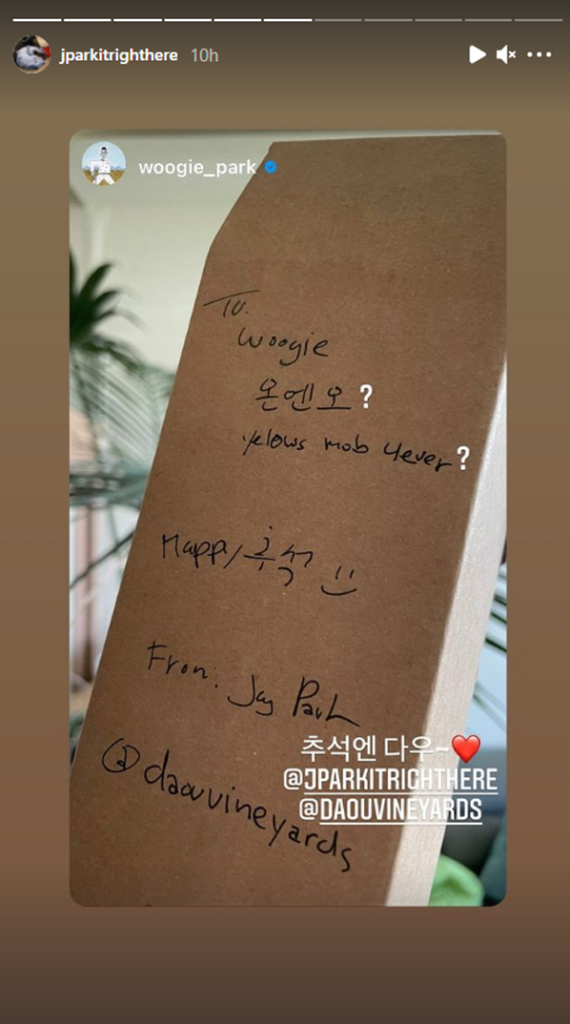 jparkitrighthere 10h
woogie_park
To.
Woogie
온엔오?
yelows mob 4ever?
Happy 추석 :)
From. Jay Park
@daouvineyards
추석엔 다우~❤️
@JPARKITRIGHTHERE
@DAOUVINEYARDS